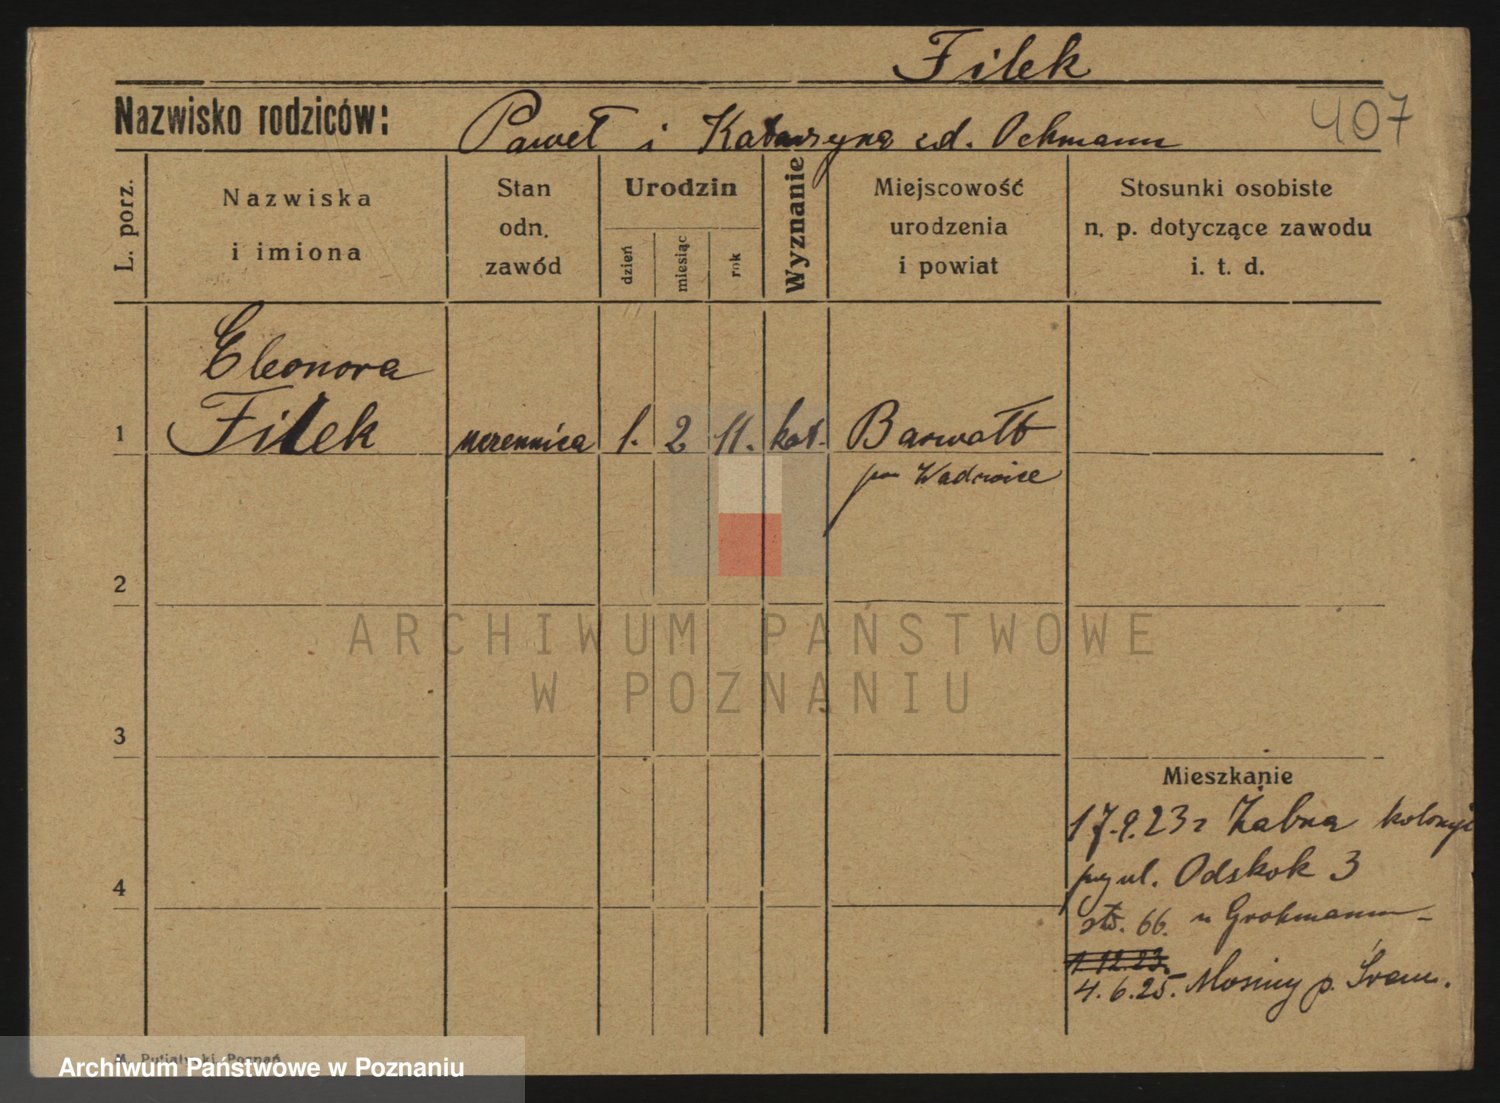 Filek
407
Nazwisko rodziców: Paweł i Katarzyna zd. Ochmann
L. porz.
Nazwiska
i imiona
Stan
odn.
zawód
Urodzin
dzień
miesiąc
rok
Wyznanie
Miejscowość
urodzenia
i powiat
Stosunki osobiste
n. p. dotyczące zawodu
i. t. d.
Eleonora
1 Filek uczennica 1. 2 11. kat. Barwałb
pow Wadowice
2
3
4
Mieszkanie
17.9.23 r Żabna
ul. Odskok 3
66. u Grohmann
1.12.23.
4.6.25. Mosiny p. Śrem.
ARCHIWUM PAŃSTWOWE
W POZNANIU
M. Putiatycki, Poznań
Archiwum Państwowe w Poznaniu